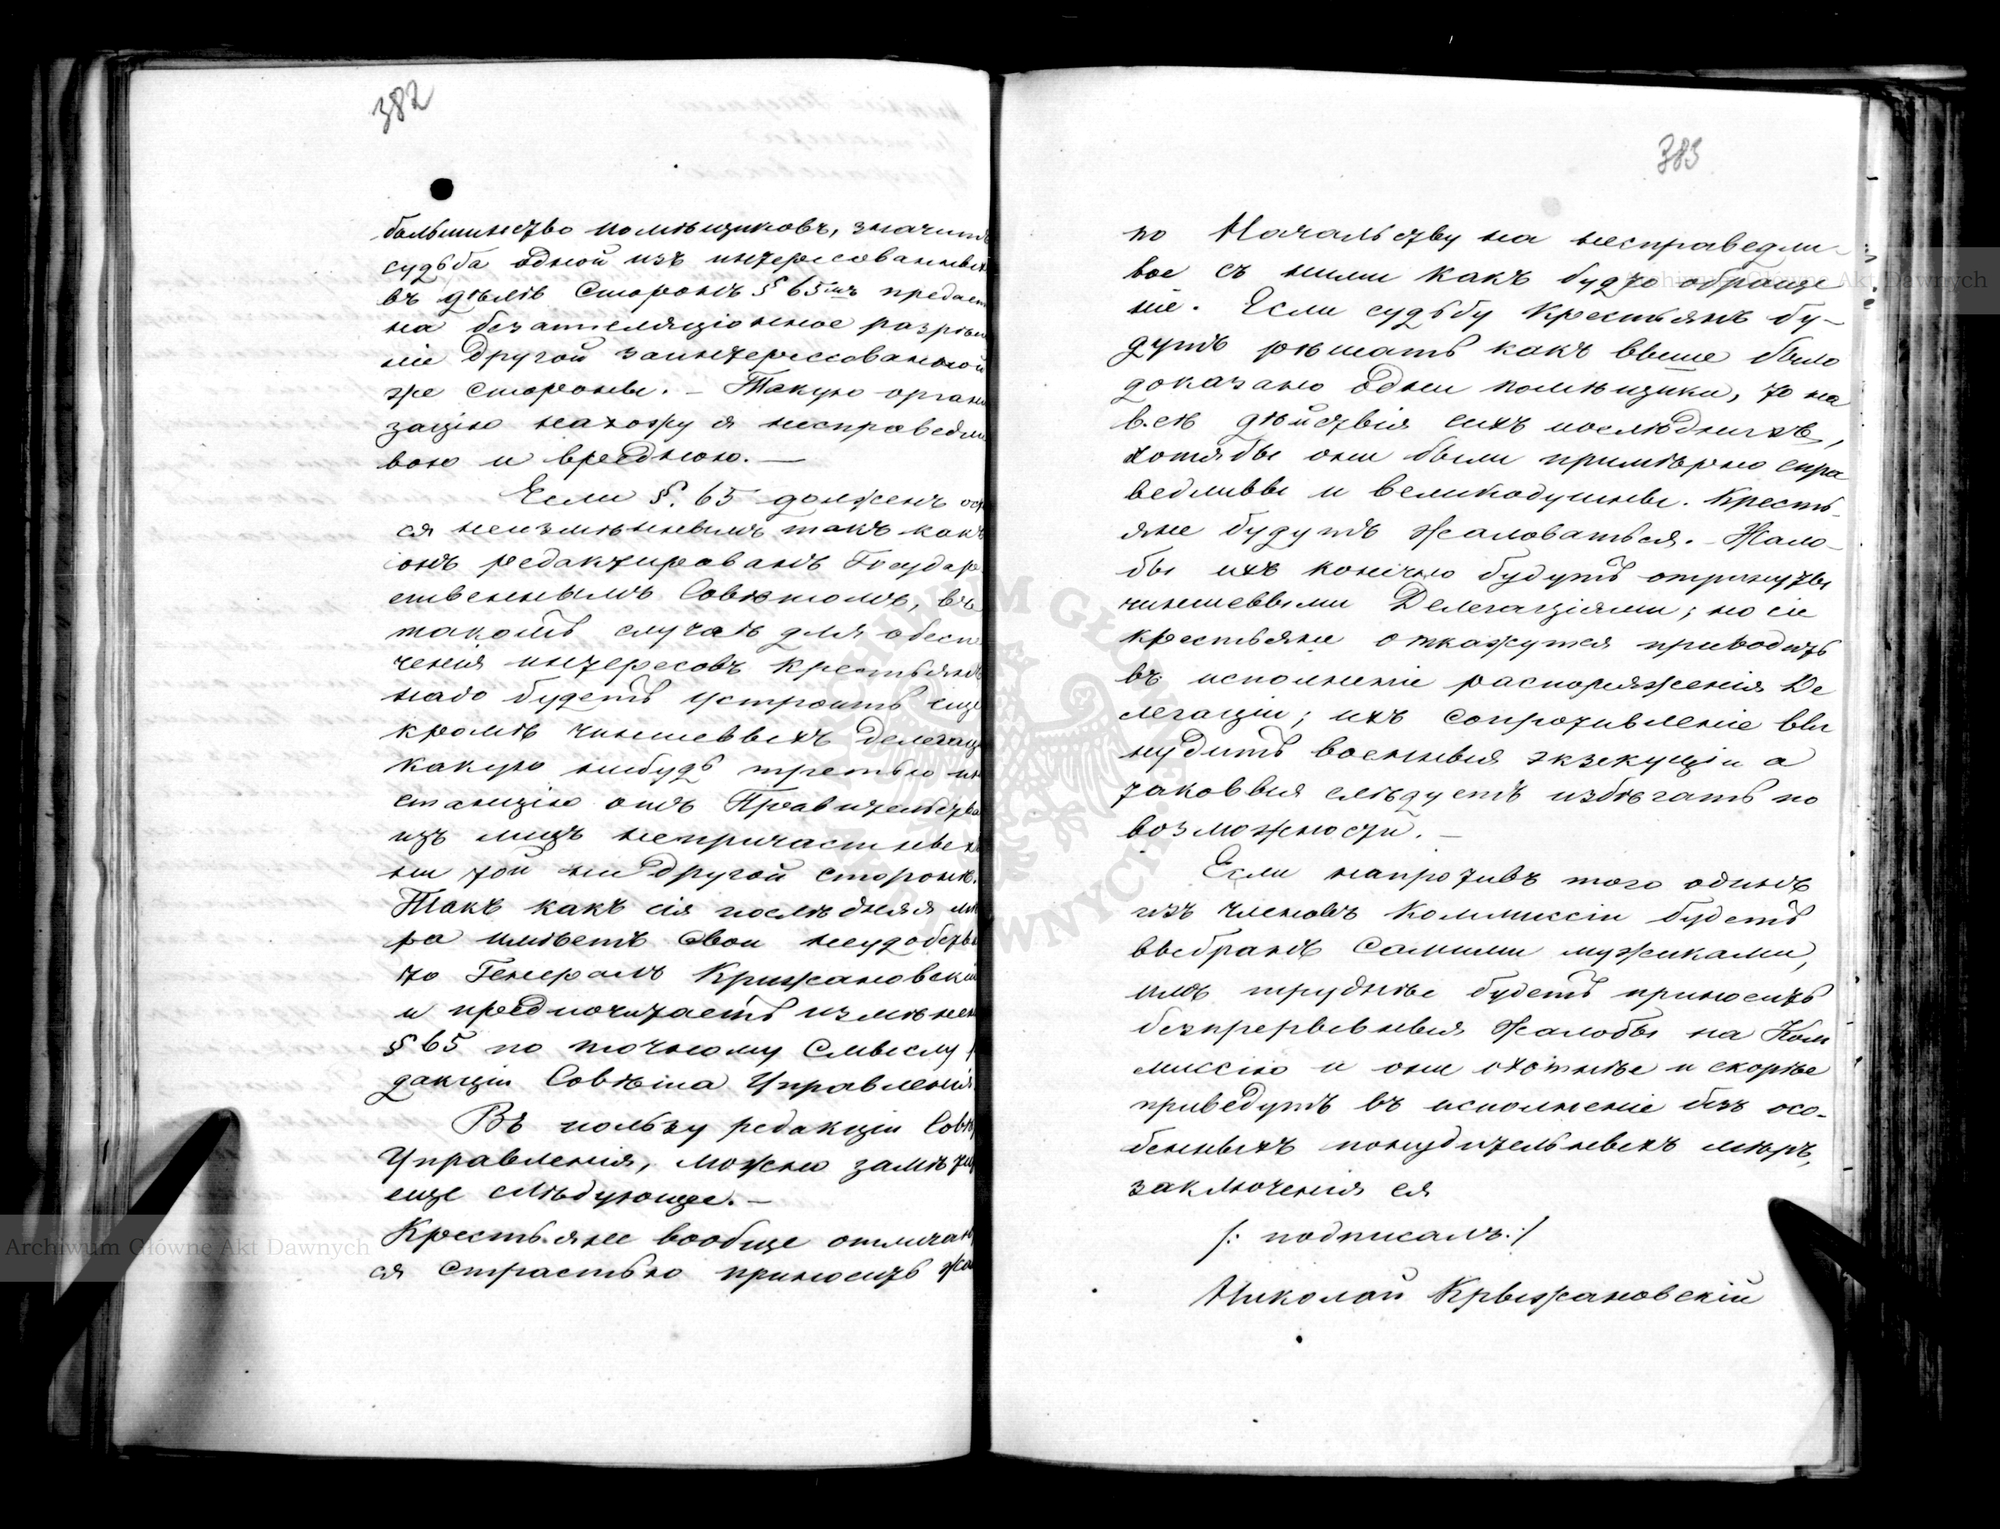 382
большинство помѣщиковъ, значитъ
судьба одной изъ интересованныхъ
въ дѣлѣ Сторонъ § 65мъ предает
на безаппеляціонное разрѣше
ніе другой заинтерессованной
же стороны. – Такую органи
зацію нахожу я несправедли
вою и вредною. —
Если §. 65 долженъ ост
ся неизмѣннымъ такъ какъ
онъ редактированъ Государ
ственнымъ Совѣтомъ, въ
такомъ случаѣ для обезп
ченія интересовъ крестьянъ
надо будетъ устроить еще
кромѣ чиншевыхъ делегац
какую нибудь третью ин
станцію отъ Правительства
изъ лицъ непричастныхъ
ни той ни другой сторонѣ.
Такъ какъ сія послѣдняя мѣ
ра имѣетъ свои неудобств
то Генералъ Крижановскій
и предпочитаетъ измѣнен
§ 65 по точному смыслу
дакціи Совѣта Управленія
Въ пользу редакціи Совѣ
Управленія, можно замѣти
еще слѣдующее. —
Крестьяне вообще отличаю
ся страстью приносить жа
383
по Начальству на несправедли-
вое съ ними какъ будто обраще
ніе. Если судьбу Крестьянъ бу-
дутъ рѣшать какъ выше было
доказано одни помѣщики, то на
всѣ дѣйствія сихъ послѣднихъ,
хотябы они были примѣрно спра
ведливы и великодушны. Кресть-
яне будутъ жаловаться. – Жало-
бы ихъ конечно будутъ отринуты
чиншевыми Делегаціями; но сіи
крестьяне откажутся приводить
въ исполненіе распоряженія Де
легаціи; ихъ сопротивленіе вы
нудитъ военныя экзекуціи а
таковыя слѣдуетъ избѣгать по
возможности. —
Если напротивъ того одинъ
изъ членовъ Коммиссіи будетъ
выбранъ самими мужиками,
имъ труднѣе будетъ приносить
безпрерывныя жалобы на Ком
миссію и они охотнѣе и скорѣе
приведутъ въ исполненіе безъ осо-
бенныхъ понудительныхъ мѣръ,
заключенія ея
/: подписалъ:/
Николай Крыжановскій
Archiwum Główne Akt Dawnych
Archiwum Główne Akt Dawnych
ARCHIWUM GŁÓWNE AKT DAWNYCH